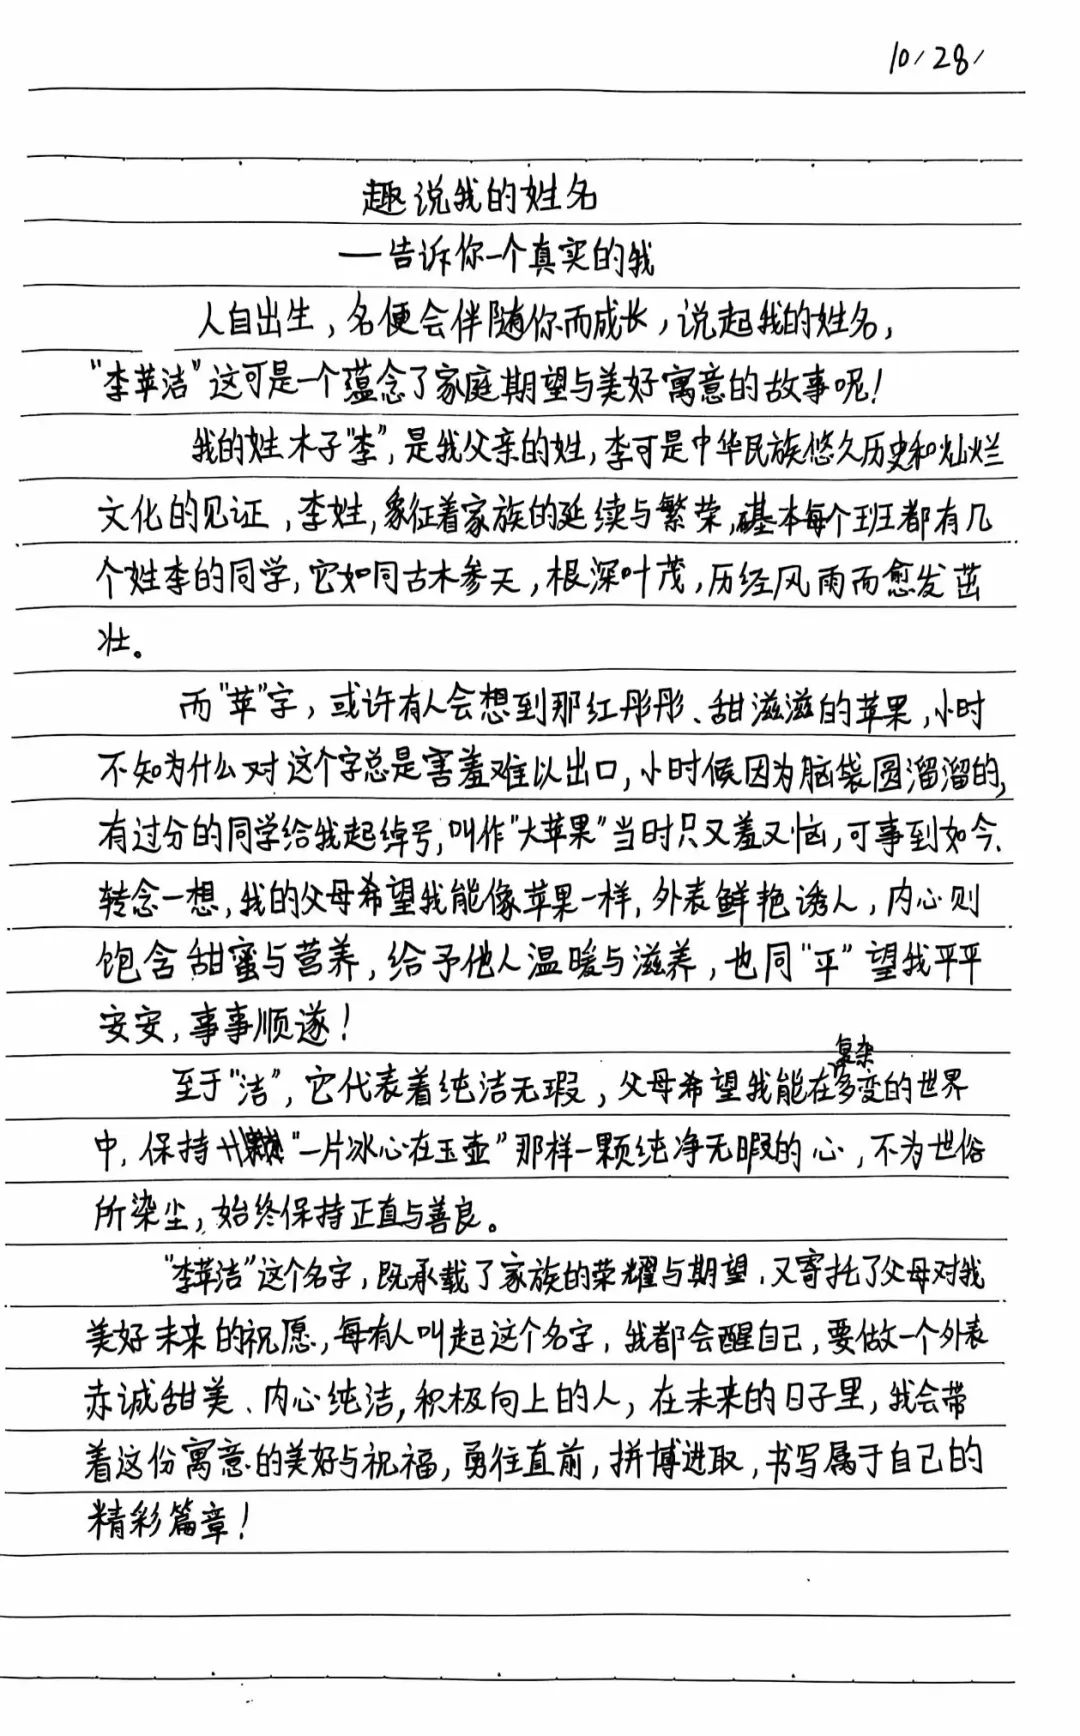 10/28/
趣说我的姓名
—告诉你一个真实的我
人自出生，名便会伴随你而成长，说起我的姓名，
"李苹洁"这可是一个蕴念了家庭期望与美好寓意的故事呢！
我的姓木子"李"，是我父亲的姓，李可是中华民族悠久历史和灿烂
文化的见证，李姓，象征着家族的延续与繁荣，基本每个班都有几
个姓李的同学，它如同古木参天，根深叶茂，历经风雨而愈发茁
壮。
而"苹"字，或许有人会想到那红彤彤、甜滋滋的苹果，小时
不知为什么对这个字总是害羞难以出口，小时候因为脑袋圆溜溜的，
有过分的同学给我起绰号，叫作"大苹果"当时只又羞又恼，可事到如今、
转念一想，我的父母希望我能像苹果一样，外表鲜艳诱人，内心则
饱含甜蜜与营养，给予他人温暖与滋养，也同"平"望我平平
安安，事事顺遂！
复杂
至于"洁"，它代表着纯洁无瑕，父母希望我能在多变的世界
中，保持"一片冰心在玉壶"那样一颗纯净无暇的心，不为世俗
所染尘，始终保持正直与善良。
"李苹洁"这个名字，既承载了家族的荣耀与期望，又寄托了父母对我
美好未来的祝愿，每有人叫起这个名字，我都会醒自己，要做一个外表
赤诚甜美、内心纯洁，积极向上的人，在未来的日子里，我会带
着这份寓意的美好与祝福，勇往直前，拼博进取，书写属于自己的
精彩篇章！